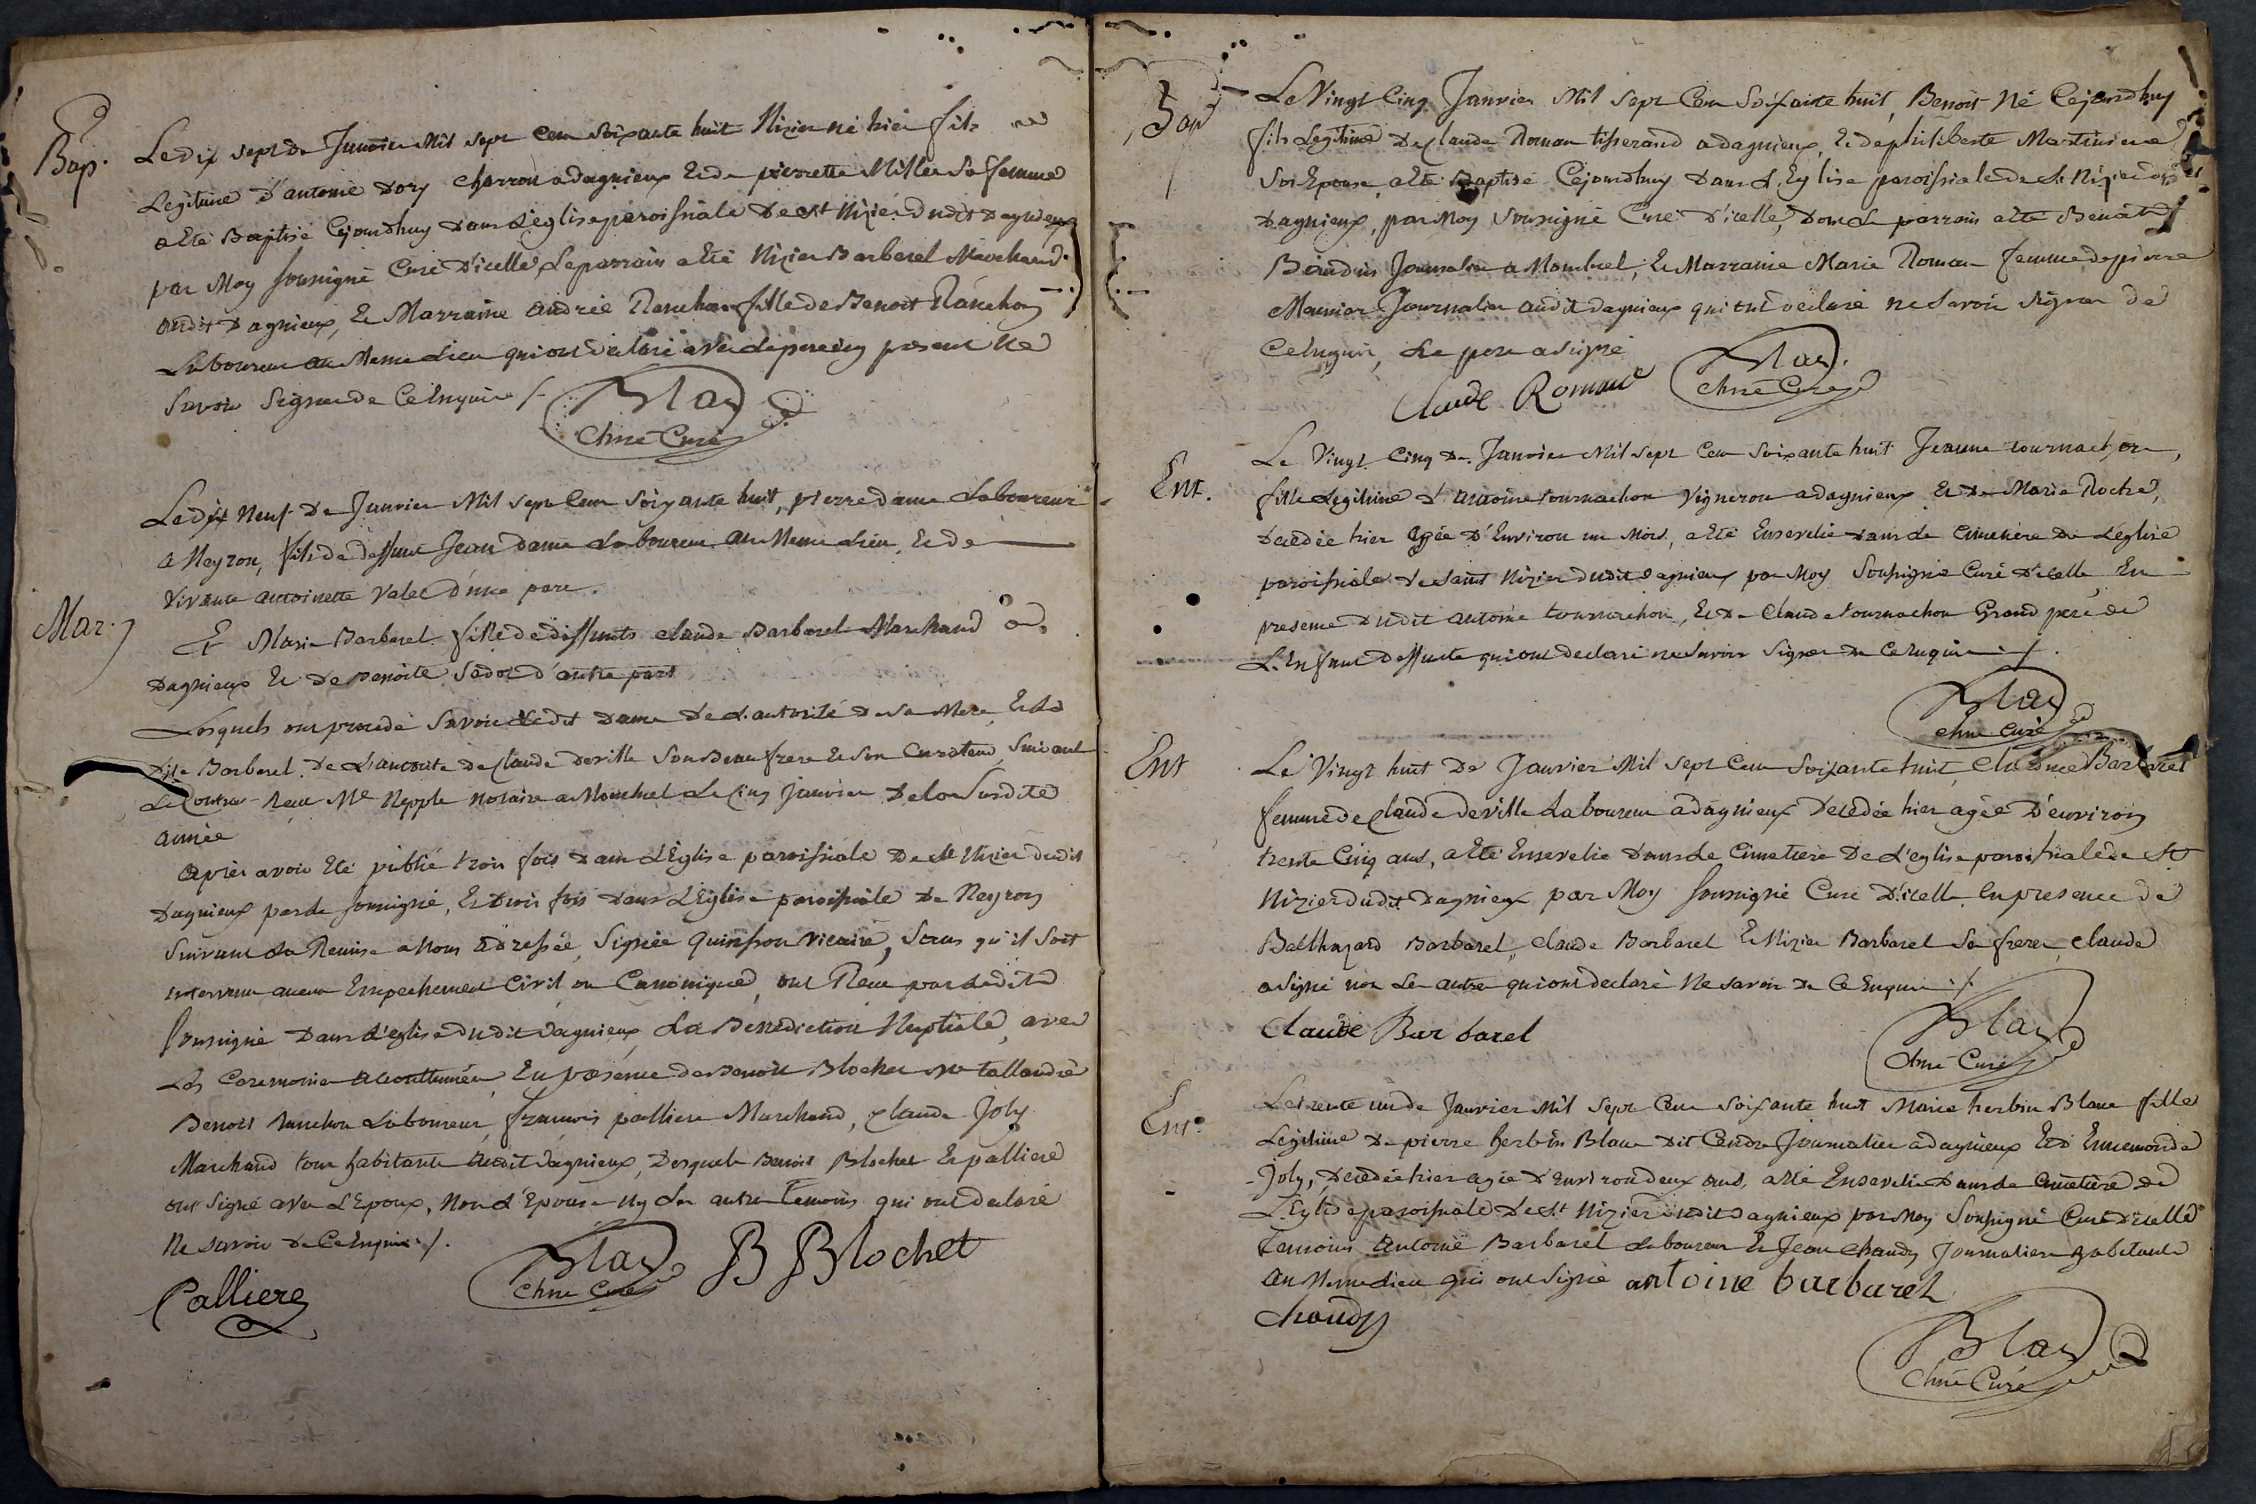 Bap.
Le dix sept de Janvier Mil sept cent soixante huit Nizier né hier fils
Legitime d'antoine Dory charron a dagnieux et de pierrette Millet sa femme
a eté Baptisé cejourdhuy dans l'église paroissiale de st Nizier dudit dagnieux
par Moy soussigné Curé d'icelle, Le parrain a eté Nizier Barbarel Marchand
audit dagnieux, et Marraine andrée Ranchon fille de Benoit Ranchon
Laboureur au Meme lieu qui ont declaré avec le pere present ne
savoir signer de ce enquis /.
Blanc
chne Curé
Mar.
Le dix Neuf de Janvier Mil sept cent soixante huit, pierre dame Laboureur
a Neyron, fils de deffunt Jean dame Laboureur au Meme lieu, et de
vivante antoinette valet d'une part.
Et Marie Barbarel fille de deffunts claude Barbarel Marchand a
dagnieux et de Benoite sedoz d'autre part
Lesquels ont procedé savoir ledit dame de l'autorité de sa Mere, et la
dite Barbarel de l'autorité de claude deville son Beau frere et son curateur, suivant
Le contrat reçu Me Nepple notaire a Montluel Le cinq janvier de la susdite
année
après avoir eté publié trois fois dans l'Eglise paroissiale de st Nizier dudit
dagnieux par le soussigné, et trois fois dans L'Eglise paroissiale de Neyron
suivant la Remise a Nous adressée, signée quinsson vicaire, sans qu'il soit
intervenu aucun Empechement Civil ou Canonique, ont Reçu par ledit
soussigné dans l'eglise dudit dagnieux La Benediction Nuptiale, avec
Les Ceremonies accoutumées En presence de Benoit Blochet Me tallandié
Benoit Ranchon Laboureur, françois palliere Marchand, claude Joly
Marchand tous habitants audit dagnieux, desquels Benoit Blochet et palliere
ont signé avec L'Epoux, Non L'Epouse ny les autres temoins qui ont declaré
ne savoir de ce enquis /.
Blanc
chne Curé
B Blochet
Palliere
Bap
Le Vingt Cinq Janvier Mil sept Cent soixante huit, Benoit né Cejourdhuy
fils Legitime de claude Roman tisserand a dagnieux, et de philiberte Martiniere
son Epouse, a eté Baptisé Cejourdhuy dans L'Eglise paroissiale de st Nizier
dagnieux, par Moy soussigné Curé d'icelle, dont Le parrain a eté Benoit
Baudin Journalier a Montluel, et Marraine Marie Roman femme de pierre
Meunier Journalier audit dagnieux qui ont declaré ne savoir signer de
ce enquis, Le pere a signé
Claude Roman
Blanc.
chne Curé
Ent.
Le Vingt Cinq de Janvier Mil sept Cent soixante huit Jeanne tournachon,
fille Legitime d'antoine tournachon vigneron a dagnieux et de Marie Roche,
decedée hier agée d'Environ un Mois, a eté Ensevelie dans le cimetiere de l'église
paroissiale de saint Nizier dudit dagnieux par Moy soussigné Curé d'icelle En
presence dudit antoine tournachon, et de claude tournachon Grand pere de
L'Enfant deffunte qui ont declaré ne savoir signer de ce enquis /.
Blanc
chne Curé
Ent
Le Vingt huit de Janvier Mil sept Cent soixante huit, Barbarel
femme de claude deville Laboureur a dagnieux decedée hier agée d'environ
trente Cinq ans, a eté Ensevelie dans le Cimetiere de L'eglise paroissiale de st
Nizier dudit dagnieux par Moy soussigné Curé d'icelle en presence de
Balthazard Barbarel, claude Barbarel et Nizier Barbarel ses freres, claude
a signé non les autres qui ont declaré Ne savoir de ce enquis /.
Claude Barbarel
Blanc
chne Curé
Ent.
Le trente un de Janvier Mil sept Cent soixante huit Marie herbin Blanc fille
Legitime de pierre herbin Blanc dit Journalier a dagnieux et d'Ennemonde
Joly, decedée hier agée d'Environ deux ans, a eté Ensevelie dans le Cimetiere de
L'Eglise paroissiale de st Nizier dudit dagnieux par Moy soussigné Curé d'icelle
temoins antoine Barbarel Laboureur et Jean chaudy Journalier habitants
au Meme lieu qui ont signé antoine barbarel
chaudy
Blanc
chne Curé